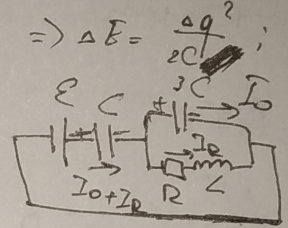 => ΔE = Δq² / 2C ;
ε C 3C I₀
+ - + -
I_R
I₀+I_R R L